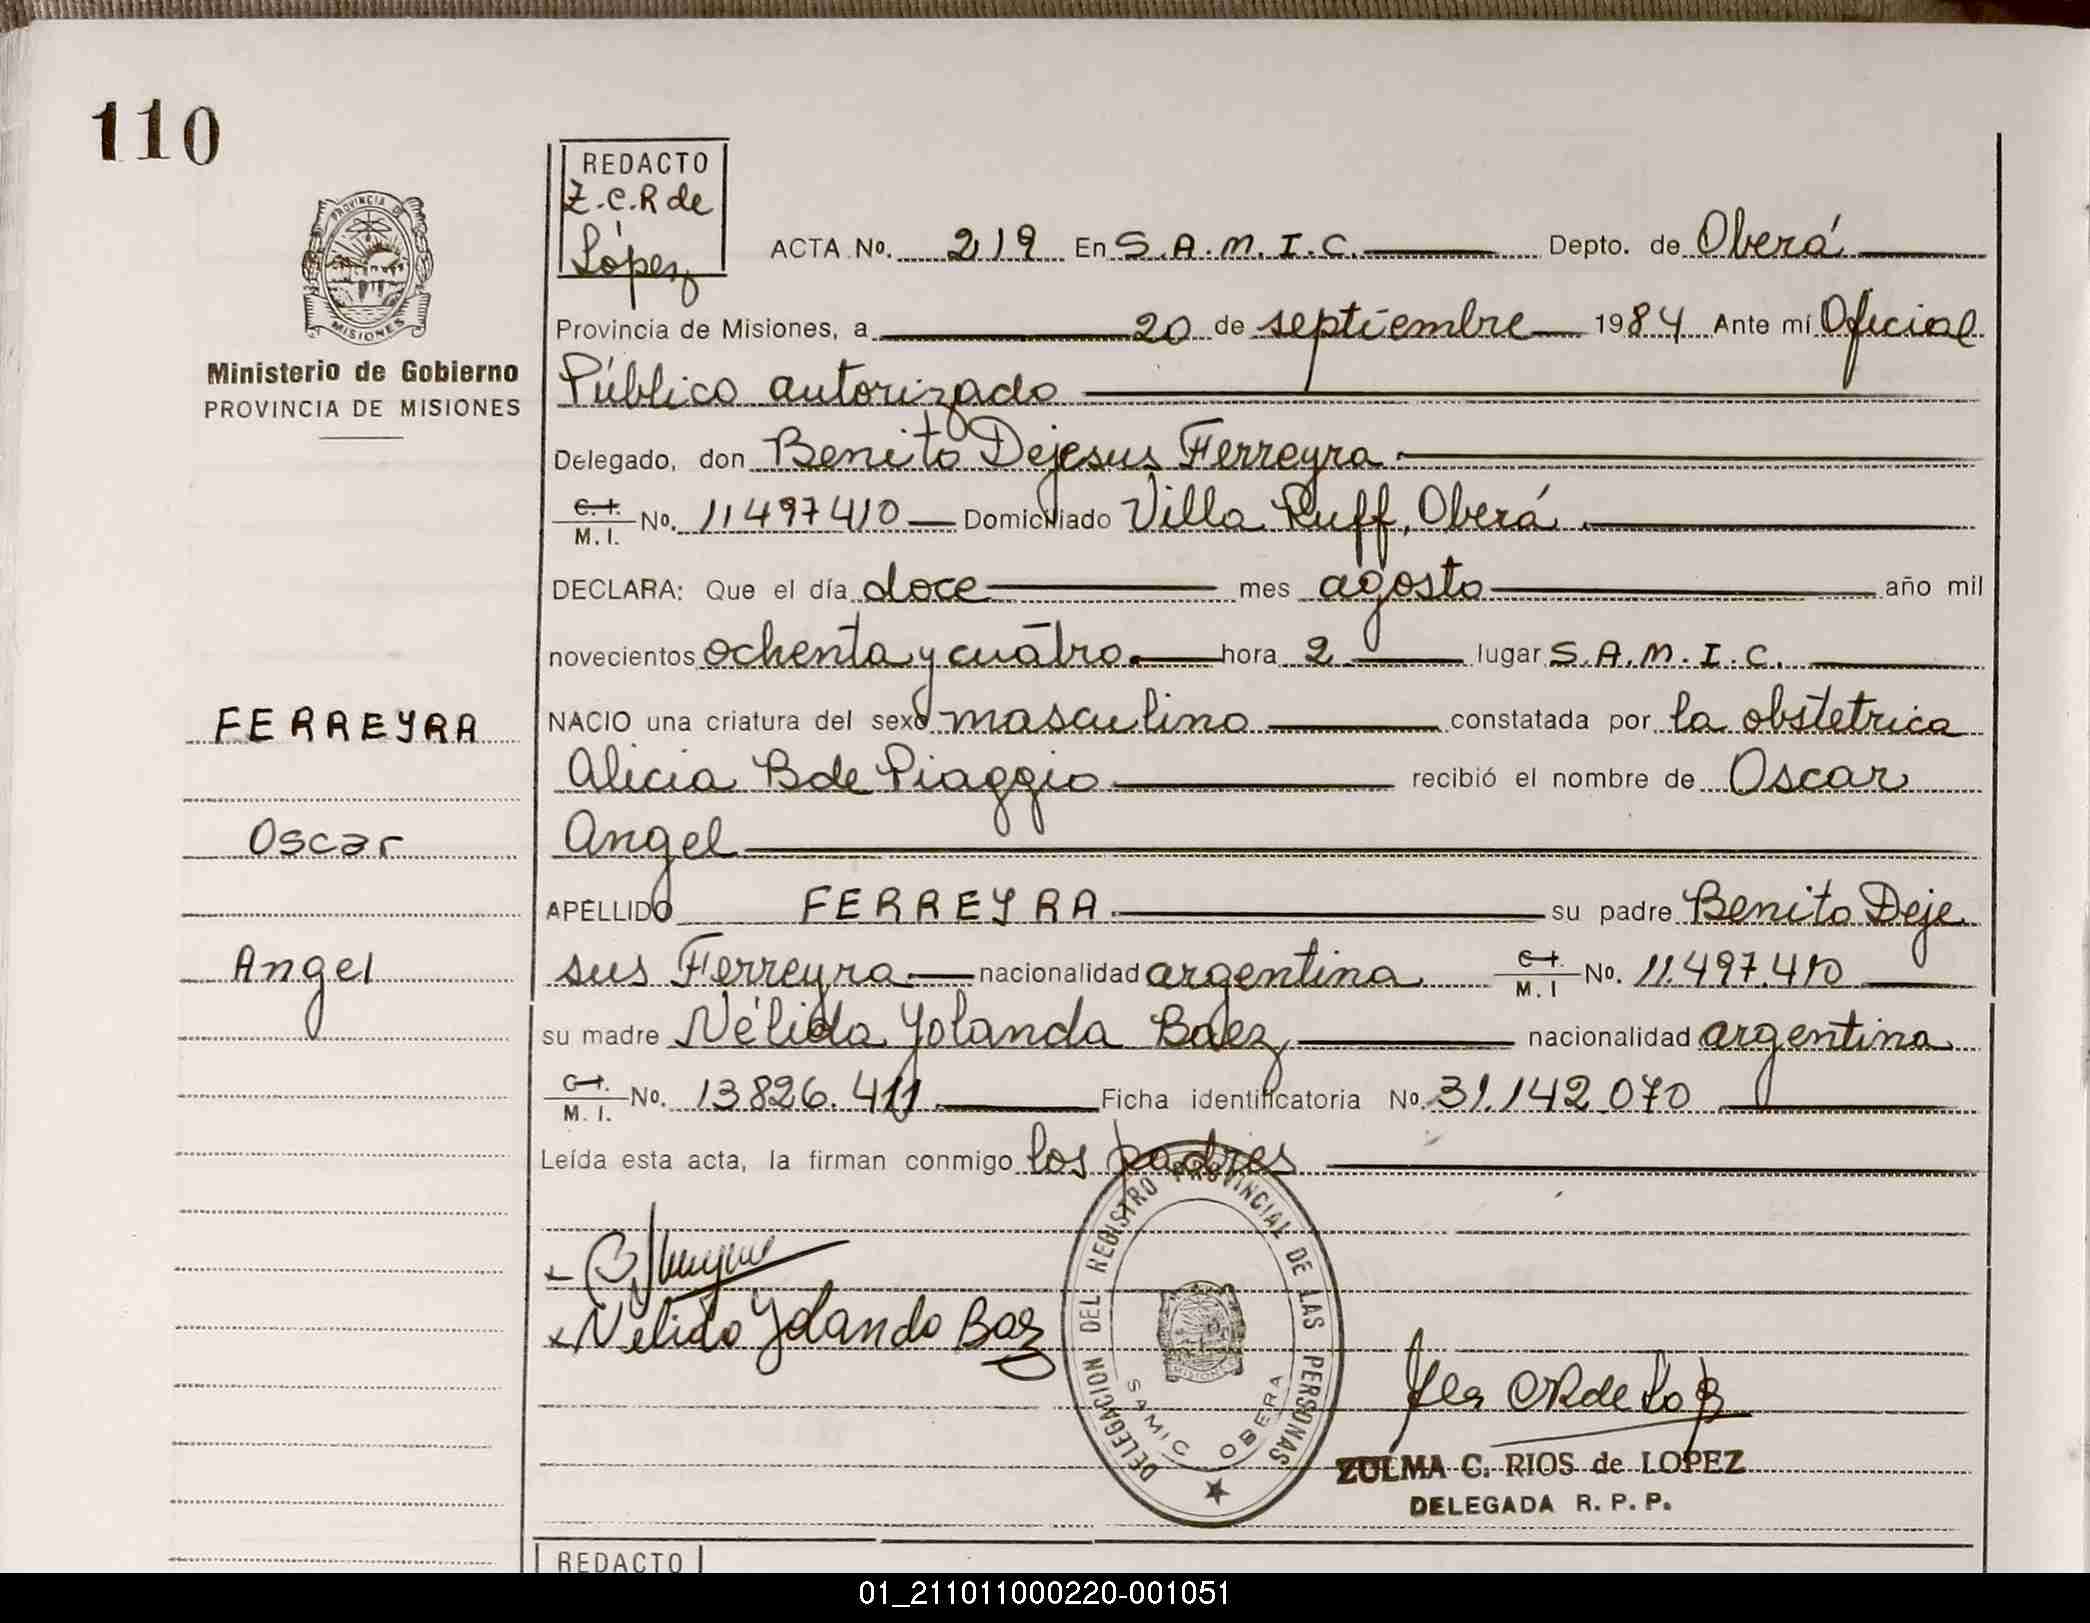 110
REDACTO
Z.C.R de
López
PROVINCIA DE
MISIONES
Ministerio de Gobierno
PROVINCIA DE MISIONES
ACTA No. 219 En S.A.M.I.C. Depto. de Oberá
Provincia de Misiones, a 20 de septiembre 1984 Ante mí Oficial
Público autorizado
Delegado, don Benito Dejesus Ferreyra
C.I.
M.I. No. 11497410 Domiciliado Villa Ruff, Oberá
DECLARA: Que el día doce mes agosto año mil
novecientos ochenta y cuatro. hora 2 lugar S.A.M.I.C.
FERREYRA
NACIO una criatura del sexo masculino constatada por la obstetrica
Alicia B de Piaggio recibió el nombre de Oscar
Oscar
Angel
APELLIDO FERREYRA su padre Benito Deje
Angel
sus Ferreyra nacionalidad argentina C.I.
M.I No. 11.497.410
su madre Nélida Yolanda Baez nacionalidad argentina
C.I.
M.I. No. 13826.411 Ficha identificatoria No. 31.142.070
Leída esta acta, la firman conmigo los padres
Nelida Yolanda Baez
DELEGACION DEL REGISTRO PROVINCIAL DE LAS PERSONAS
SAMIC OBERA
ZULMA C. RIOS de LOPEZ
DELEGADA R.P.P.
REDACTO
01_211011000220-001051